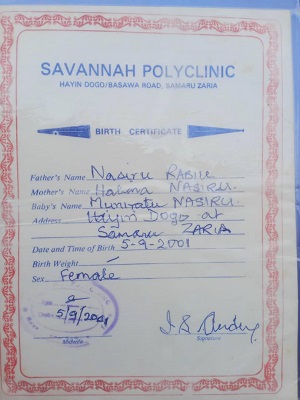 SAVANNAH POLYCLINIC
HAYIN DOGO/BASAWA ROAD, SAMARU ZARIA
BIRTH CERTIFICATE
Father's Name Nasiru RABIU
Mother's Name Halima NASIRU.
Baby's Name Muniratu NASIRU.
Address Hayin Dogo at
Samaru ZARIA
Date and Time of Birth 5-9-2001
Birth Weight -
Sex Female
5/9/2001
Midwife
Signature